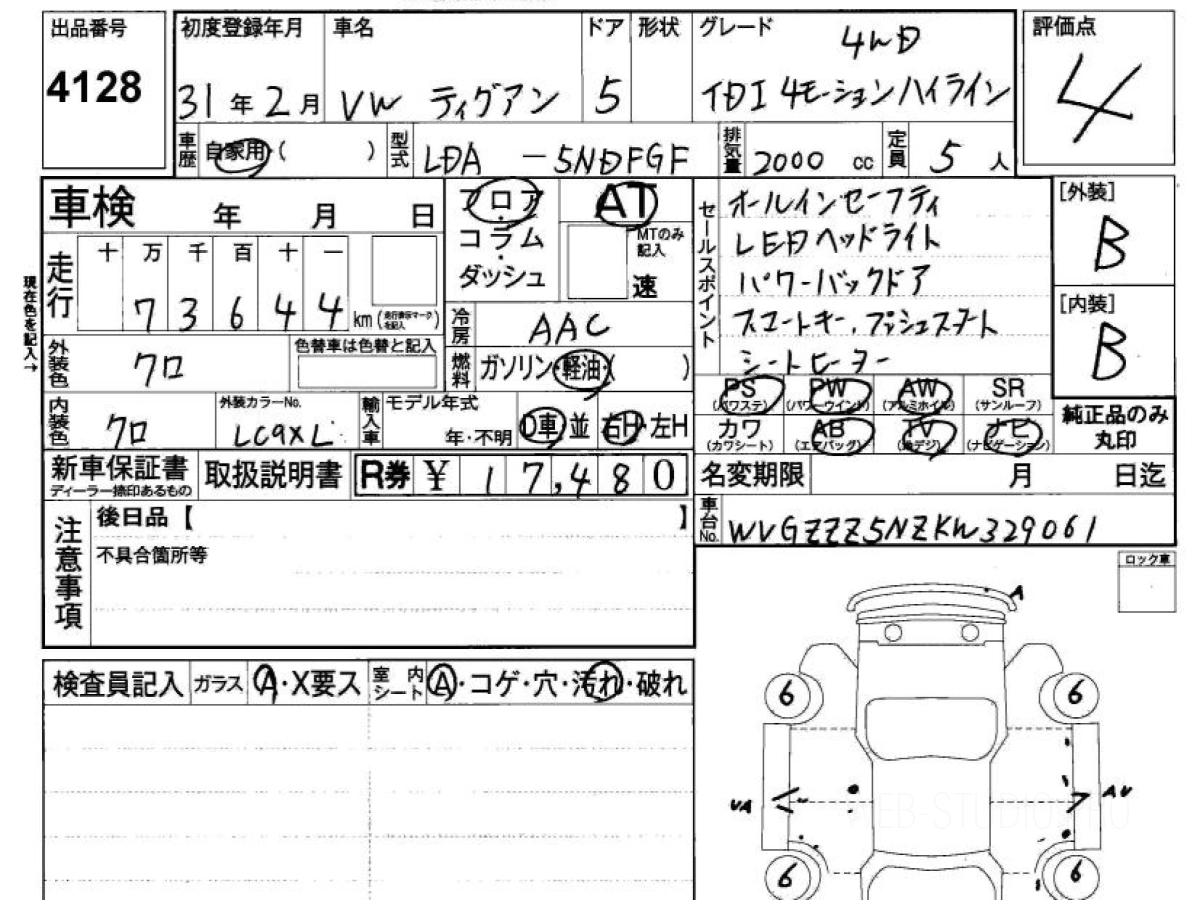 出品番号
4128
初度登録年月
31年2月
車名
VW ティグアン
ドア
5
形状
グレード
4WD
TDI 4モーションハイライン
評価点
4
車歴
自家用・( )
型式
LDA -5NDFGF
排気量
2000 cc
定員
5人
車検 年 月 日
走行
十 万 千 百 十 一
7 3 6 4 4 km
(走行表示マークを記入)
現在色を記入→
フロア
コラム
ダッシュ
AT
MTのみ記入
速
セールスポイント
オールインセーフティ
LEDヘッドライト
パワーバックドア
スマートキー,プッシュスタート
シートヒーター
[外装]
B
[内装]
B
冷房
AAC
外装色
クロ
色替車は色替と記入
燃料
ガソリン・軽油・( )
PS
(パワステ)
PW
(パワーウインド)
AW
(アルミホイル)
SR
(サンルーフ)
カワ
(カワシート)
AB
(エアバッグ)
TV
(地デジ)
ナビ
(ナビゲーション)
純正品のみ
丸印
内装色
クロ
外装カラーNo.
LC9XL
輸入車
モデル年式
年・不明
D車・並
右H・左H
新車保証書
ディーラー捺印あるもの
取扱説明書
R券 ¥ 17,480
名変期限 月 日迄
車台No.
WVGZZZ5NZKW329061
注意事項
後日品【 】
不具合箇所等
ロック車
検査員記入
ガラス A・X要ス
室内シート A・コゲ・穴・汚れ・破れ
A
6
6
UA
AU
6
6
WEB-STUDIO.RU